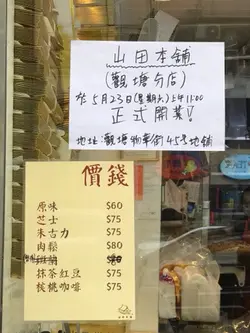 山田本舖
(觀塘分店)
於5月23日(星期六)上午11:00
正式開業!
地址:觀塘物華街45號地舖
價錢
原味 $60
芝士 $75
朱古力 $75
肉鬆 $80
抹茶紅豆 $75
核桃咖啡 $75